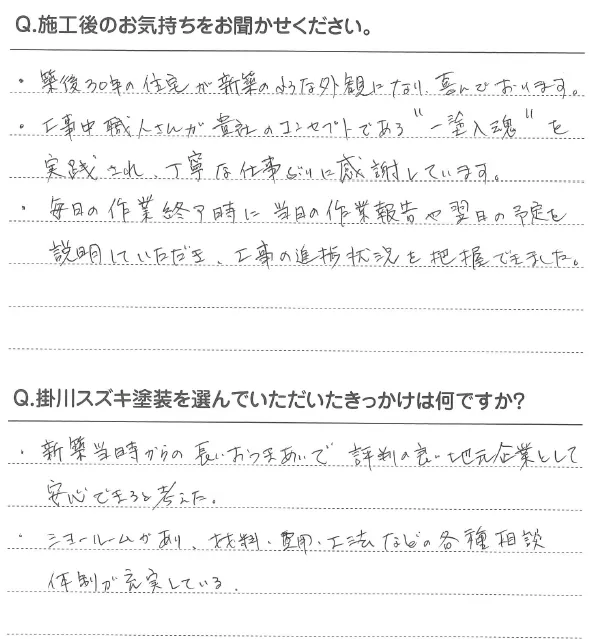 Q.施工後のお気持ちをお聞かせください。
・築後30年の住宅が新築のような外観になり、喜んでおります。
・工事中職人さんが貴社のコンセプトである"一塗入魂"を
実践され、丁寧な仕事ぶりに感謝しています。
・毎日の作業終了時に当日の作業報告や翌日の予定を
説明していただき、工事の進捗状況を把握できました。
Q.掛川スズキ塗装を選んでいただいたきっかけは何ですか?
・新築当時からの長いおつきあいで評判の良い地元企業として
安心できると考えた。
・ショールームがあり、材料・費用・工法などの各種相談
体制が充実している。